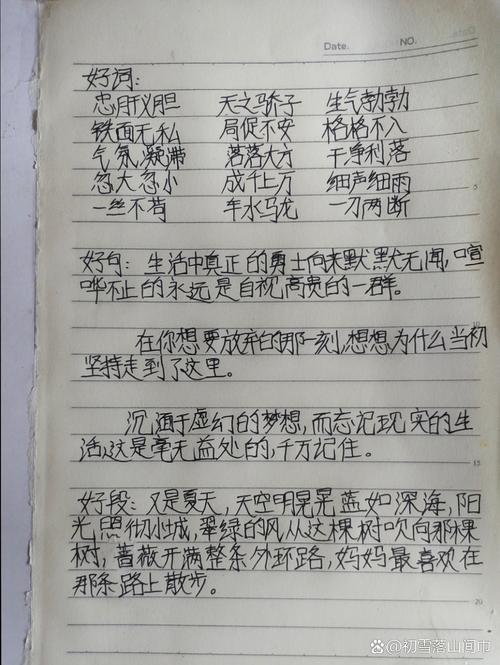 Date. NO.
好词:
忠肝义胆 天之骄子 生气勃勃
铁面无私 局促不安 格格不入
气氛凝滞 落落大方 干净利落
忽大忽小 成千上万 细声细雨
一丝不苟 车水马龙 一刀两断
好句:生活中真正的勇士向来默默无闻,喧
哗不止的永远是自视高贵的一群。
在你想要放弃的那一刻,想想为什么当初
坚持走到了这里。
沉湎于虚幻的梦想,而忘记现实的生
活,这是毫无益处的,千万记住。
好段:又是夏天,天空明晃晃蓝如深海,阳
光照彻小城,翠绿的风从这棵树吹向那棵
树,蔷薇开满整条外环路,妈妈最喜欢在
那条路上散步。
5
15
20
@初雪落山间巾